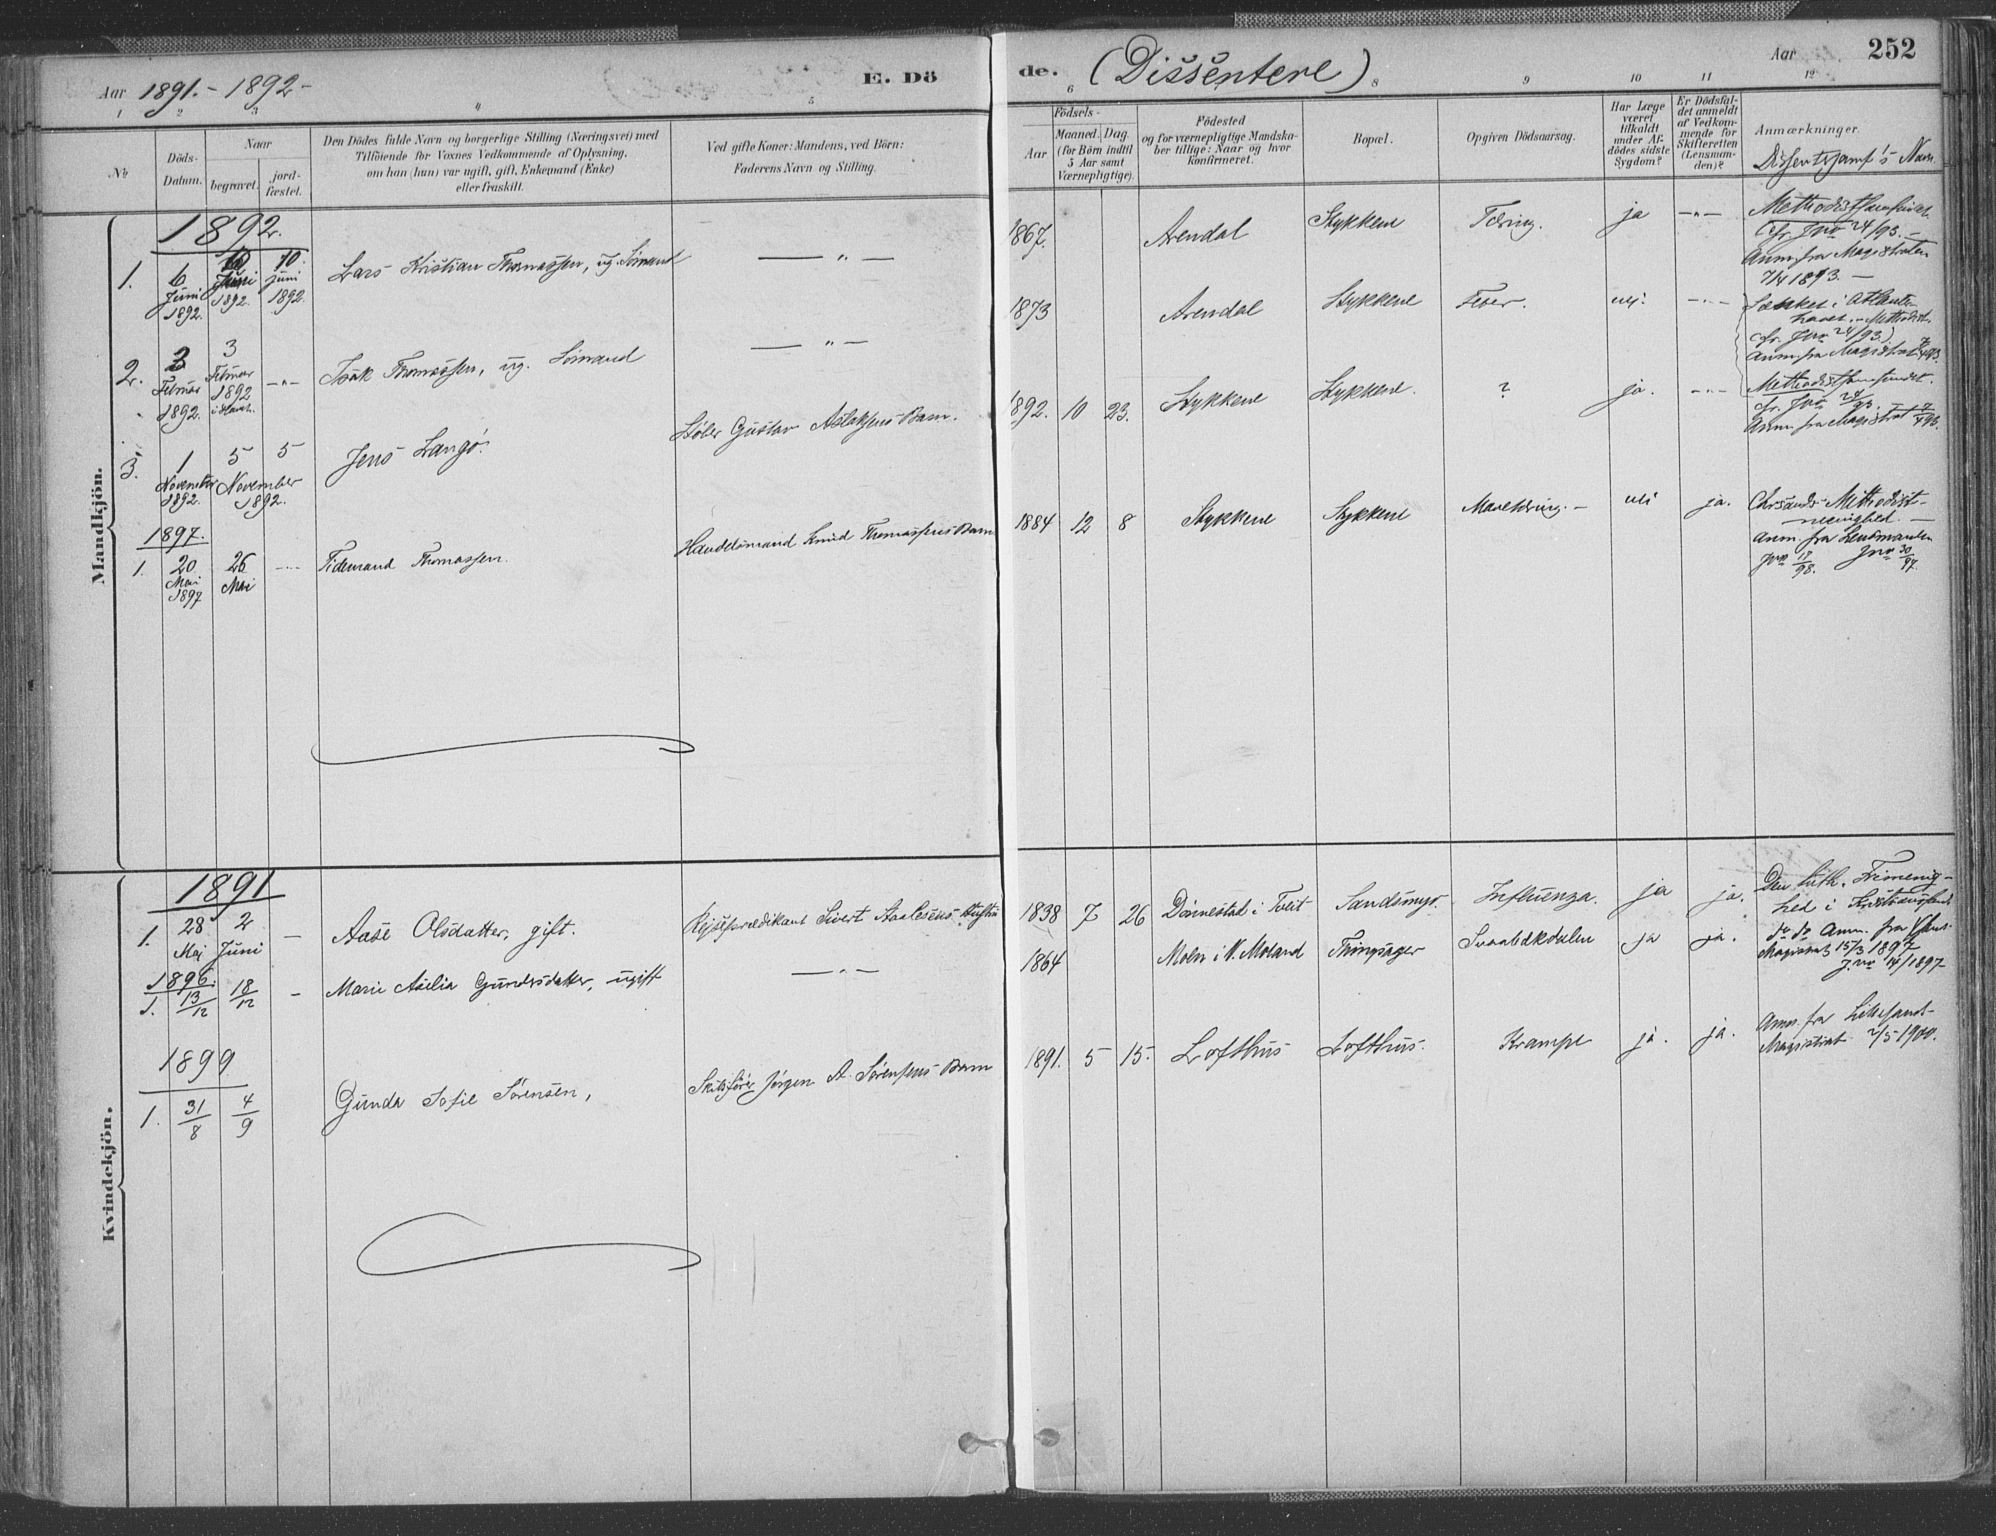 Aar 1891.-1892- E. Dö
de. (Dissentere) Aar 252
1 2 3 4 5
6 8 9 10 11 12
No
Döds-
Datum.
Naar
begravet.
jord-
fæstet.
Den Dödes fulde Navn og borgerlige Stilling (Næringsvei) med
Tilföiende for Voxnes Vedkommende af Oplysning.
om han (hun) var ugift, gift, Enkemand (Enke)
eller fraskilt.
Ved gifte Koner: Mandens, ved Börn:
Faderens Navn og Stilling.
Födsels-
Aar
Maaned. Dag.
(for Börn indtil
5 Aar samt
Værnepligtige).
Födested
og for værnepligtige Mandska-
ber tillige: Naar og hvor
konfirmeret.
Bopæl.
Opgiven Dödsaarsag.
Har Læge
været
tilkaldt
under Af-
dödes sidste
Sygdom?
Er Dödsfal-
det anmeldt
af Vedkom-
mende for
Skifteretten
(Lensman-
den)?
Anmærkninger.
Dissentersamf's Navn
Mandkjön.
1892.
1. 6 Juni 1892. Juni 1892. 10. Juni 1892. Lars Kristian Thomassen, ug. Sömand — " —
1867. Arendal Stykkene Tæring. ja -"- Methodistsamfundet.
Cfr. Jno 24/93. -
Anm. fra Magistraten
7/4 1893. -
2. 3 Februar 1892. 3 Februar 1892 i Havet. -"- Isak Thomassen, ug. Sömand — " —
1873 Arendal Stykkene Feber. nei. -"- Sænket i Atlanter-
havet. - Methodist.
cfr. Jno 24/93.)
Anm. fra Magistrat 7/4 93.
3. 1 November 1892. 5 5 November 1892. Jens Langö. Stöber Gustav Aslaksens Barn.
1892. 10 23. Stykkene Stykkene. ? ja. -"- Methodistsamfundet.
cfr. Jno 24/93.
Anm. fra Magistrat 7/4 93.
1897.
1. 20 Mai 1897 26 Mai -"- Tidemand Thomassen. Handelsmand Knud Thomassens Barn
1884 12 8 Stykkene Stykkene Mavetæring. - nei ja. Chrsands Methodist-
menighed. -
Anm. fra Lensmanden
Jno 17/98. Jno 30/97.
Kvindekjön.
1891
1. 28 Maj 2 Juni - Aase Olsdatter, gift. Rejseprædikant Sivert Staalesens Hustru
1838 7 26 Dönnestad i Tveit Sandsmyr. Influenza. ja ja. Den luth. Frimenig-
hed i Kristianssand
1896.
1. 13/12 18/12 - Marie Aselia Gundersdatter, ugift — " —
1864 Moln i V. Moland Thingsager ja ja. do do Anm. fra
Magistrat 15/3 1897
J.no 14/1897
1899
1. 31/8 4/9 Gunda Sofie Sörensen, Skibsförer Jörgen A. Sörensens Barn
1891. 5 15. Lofthus Lofthus. Krampe ja. ja. Anm. fra Lillesand-
Magistrat 2/5 1900.